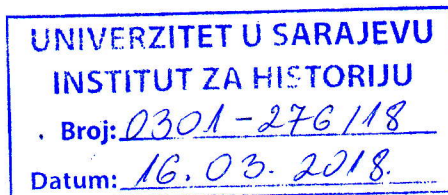 UNIVERZITET U SARAJEVU
INSTITUT ZA HISTORIJU
Broj: 0301-276/18
Datum: 16.03.2018.